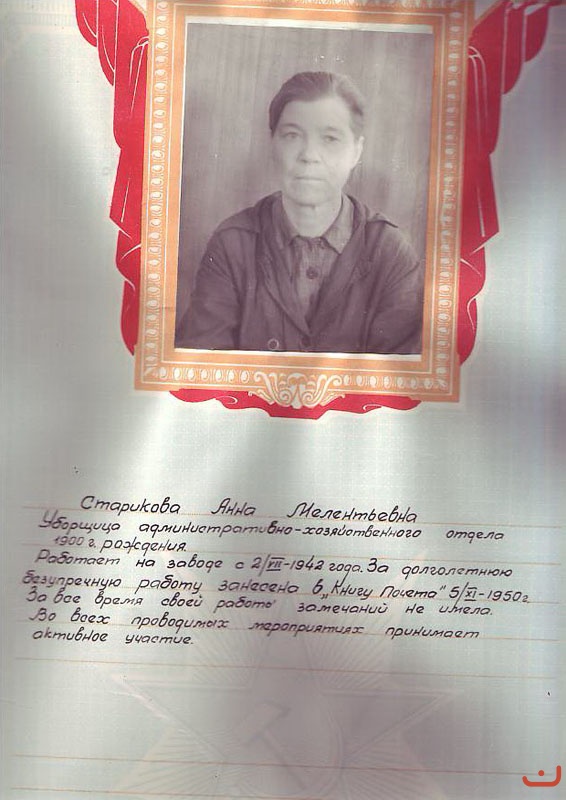 Старикова Анна Мелентьевна
Уборщица административно-хозяйственного отдела
1900 г. рождения.
Работает на заводе с 2/VII-1942 года. За долголетнюю
безупречную работу занесена в „Книгу Почета" 5/XI-1950г.
За все время своей работы замечаний не имела.
Во всех проводимых мероприятиях принимает
активное участие.